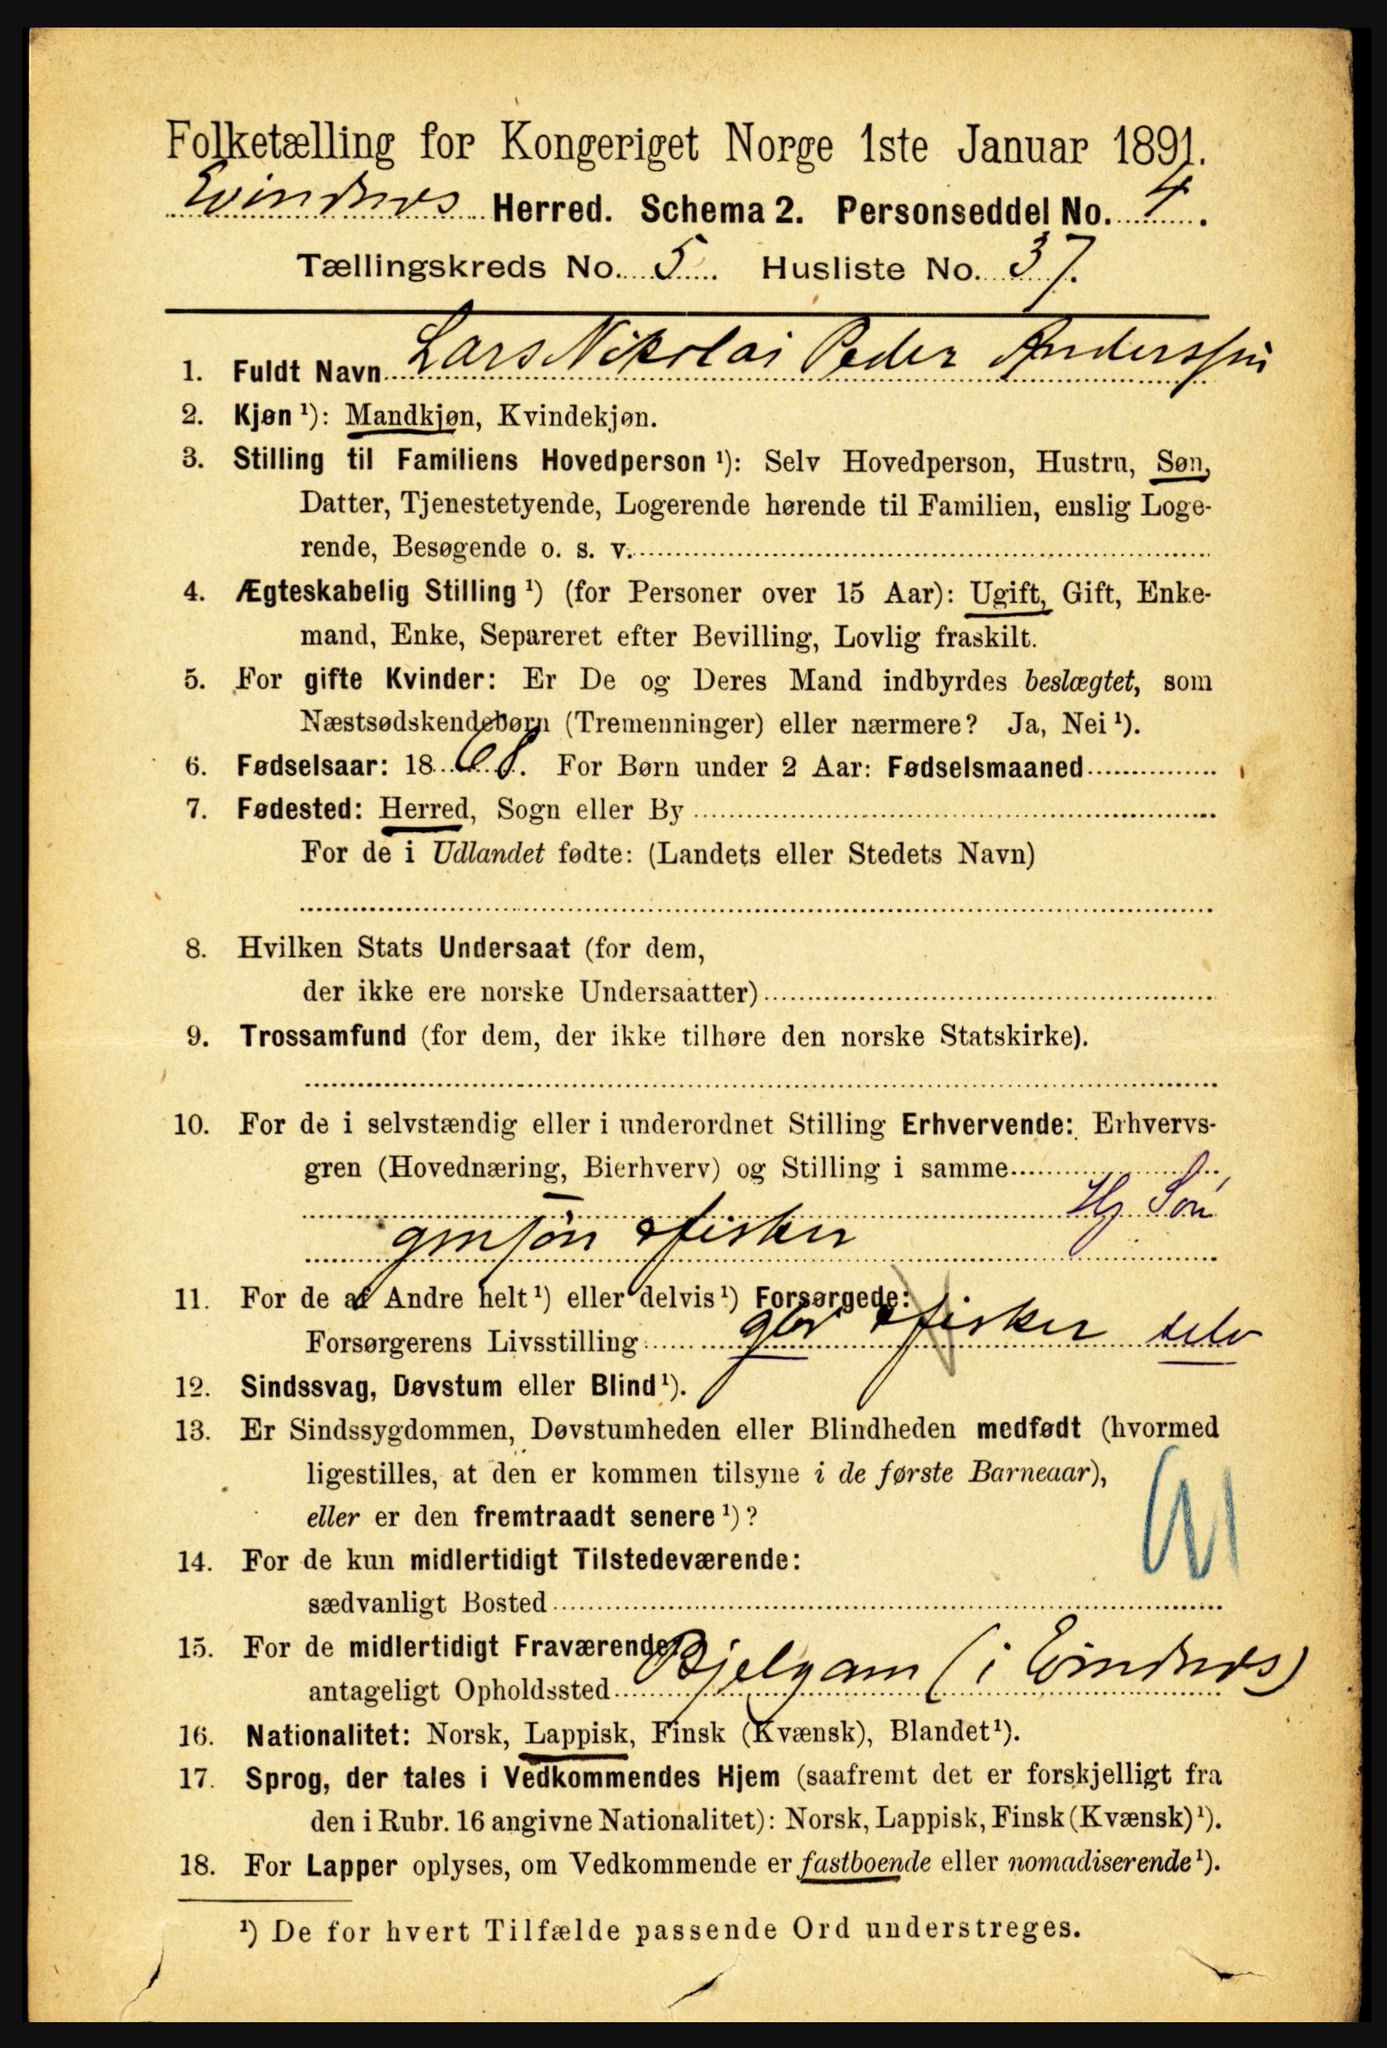 Folketælling for Kongeriget Norge 1ste Januar 1891.
Evindnes Herred. Schema 2. Personseddel No. 4.
Tællingskreds No. 5. Husliste No. 37.
1. Fuldt Navn Lars Nikolai Peder Anderssen
2. Kjøn ¹): Mandkjøn, Kvindekjøn.
3. Stilling til Familiens Hovedperson ¹): Selv Hovedperson, Hustru, Søn,
Datter, Tjenestetyende, Logerende hørende til Familien, enslig Loge-
rende, Besøgende o. s. v.
4. Ægteskabelig Stilling ¹) (for Personer over 15 Aar): Ugift, Gift, Enke-
mand, Enke, Separeret efter Bevilling, Lovlig fraskilt.
5. For gifte Kvinder: Er De og Deres Mand indbyrdes beslægtet, som
Næstsødskendebørn (Tremenninger) eller nærmere? Ja, Nei ¹).
6. Fødselsaar: 1868. For Børn under 2 Aar: Fødselsmaaned
7. Fødested: Herred, Sogn eller By
For de i Udlandet fødte: (Landets eller Stedets Navn)
8. Hvilken Stats Undersaat (for dem,
der ikke ere norske Undersaatter)
9. Trossamfund (for dem, der ikke tilhøre den norske Statskirke).
10. For de i selvstændig eller i underordnet Stilling Erhvervende: Erhvervs-
gren (Hovednæring, Bierhverv) og Stilling i samme
Hj Søn
fisker
11. For de af Andre helt ¹) eller delvis ¹) Forsørgede:
Forsørgerens Livsstilling fisker selv
12. Sindssvag, Døvstum eller Blind ¹).
13. Er Sindssygdommen, Døvstumheden eller Blindheden medfødt (hvormed
ligestilles, at den er kommen tilsyne i de første Barneaar),
eller er den fremtraadt senere ¹)?
14. For de kun midlertidigt Tilstedeværende:
sædvanligt Bosted
15. For de midlertidigt Fraværende:
antageligt Opholdssted Bjelgam (i Evindnes)
16. Nationalitet: Norsk, Lappisk, Finsk (Kvænsk), Blandet ¹).
17. Sprog, der tales i Vedkommendes Hjem (saafremt det er forskjelligt fra
den i Rubr. 16 angivne Nationalitet): Norsk, Lappisk, Finsk (Kvænsk) ¹).
18. For Lapper oplyses, om Vedkommende er fastboende eller nomadiserende ¹).
¹) De for hvert Tilfælde passende Ord understreges.